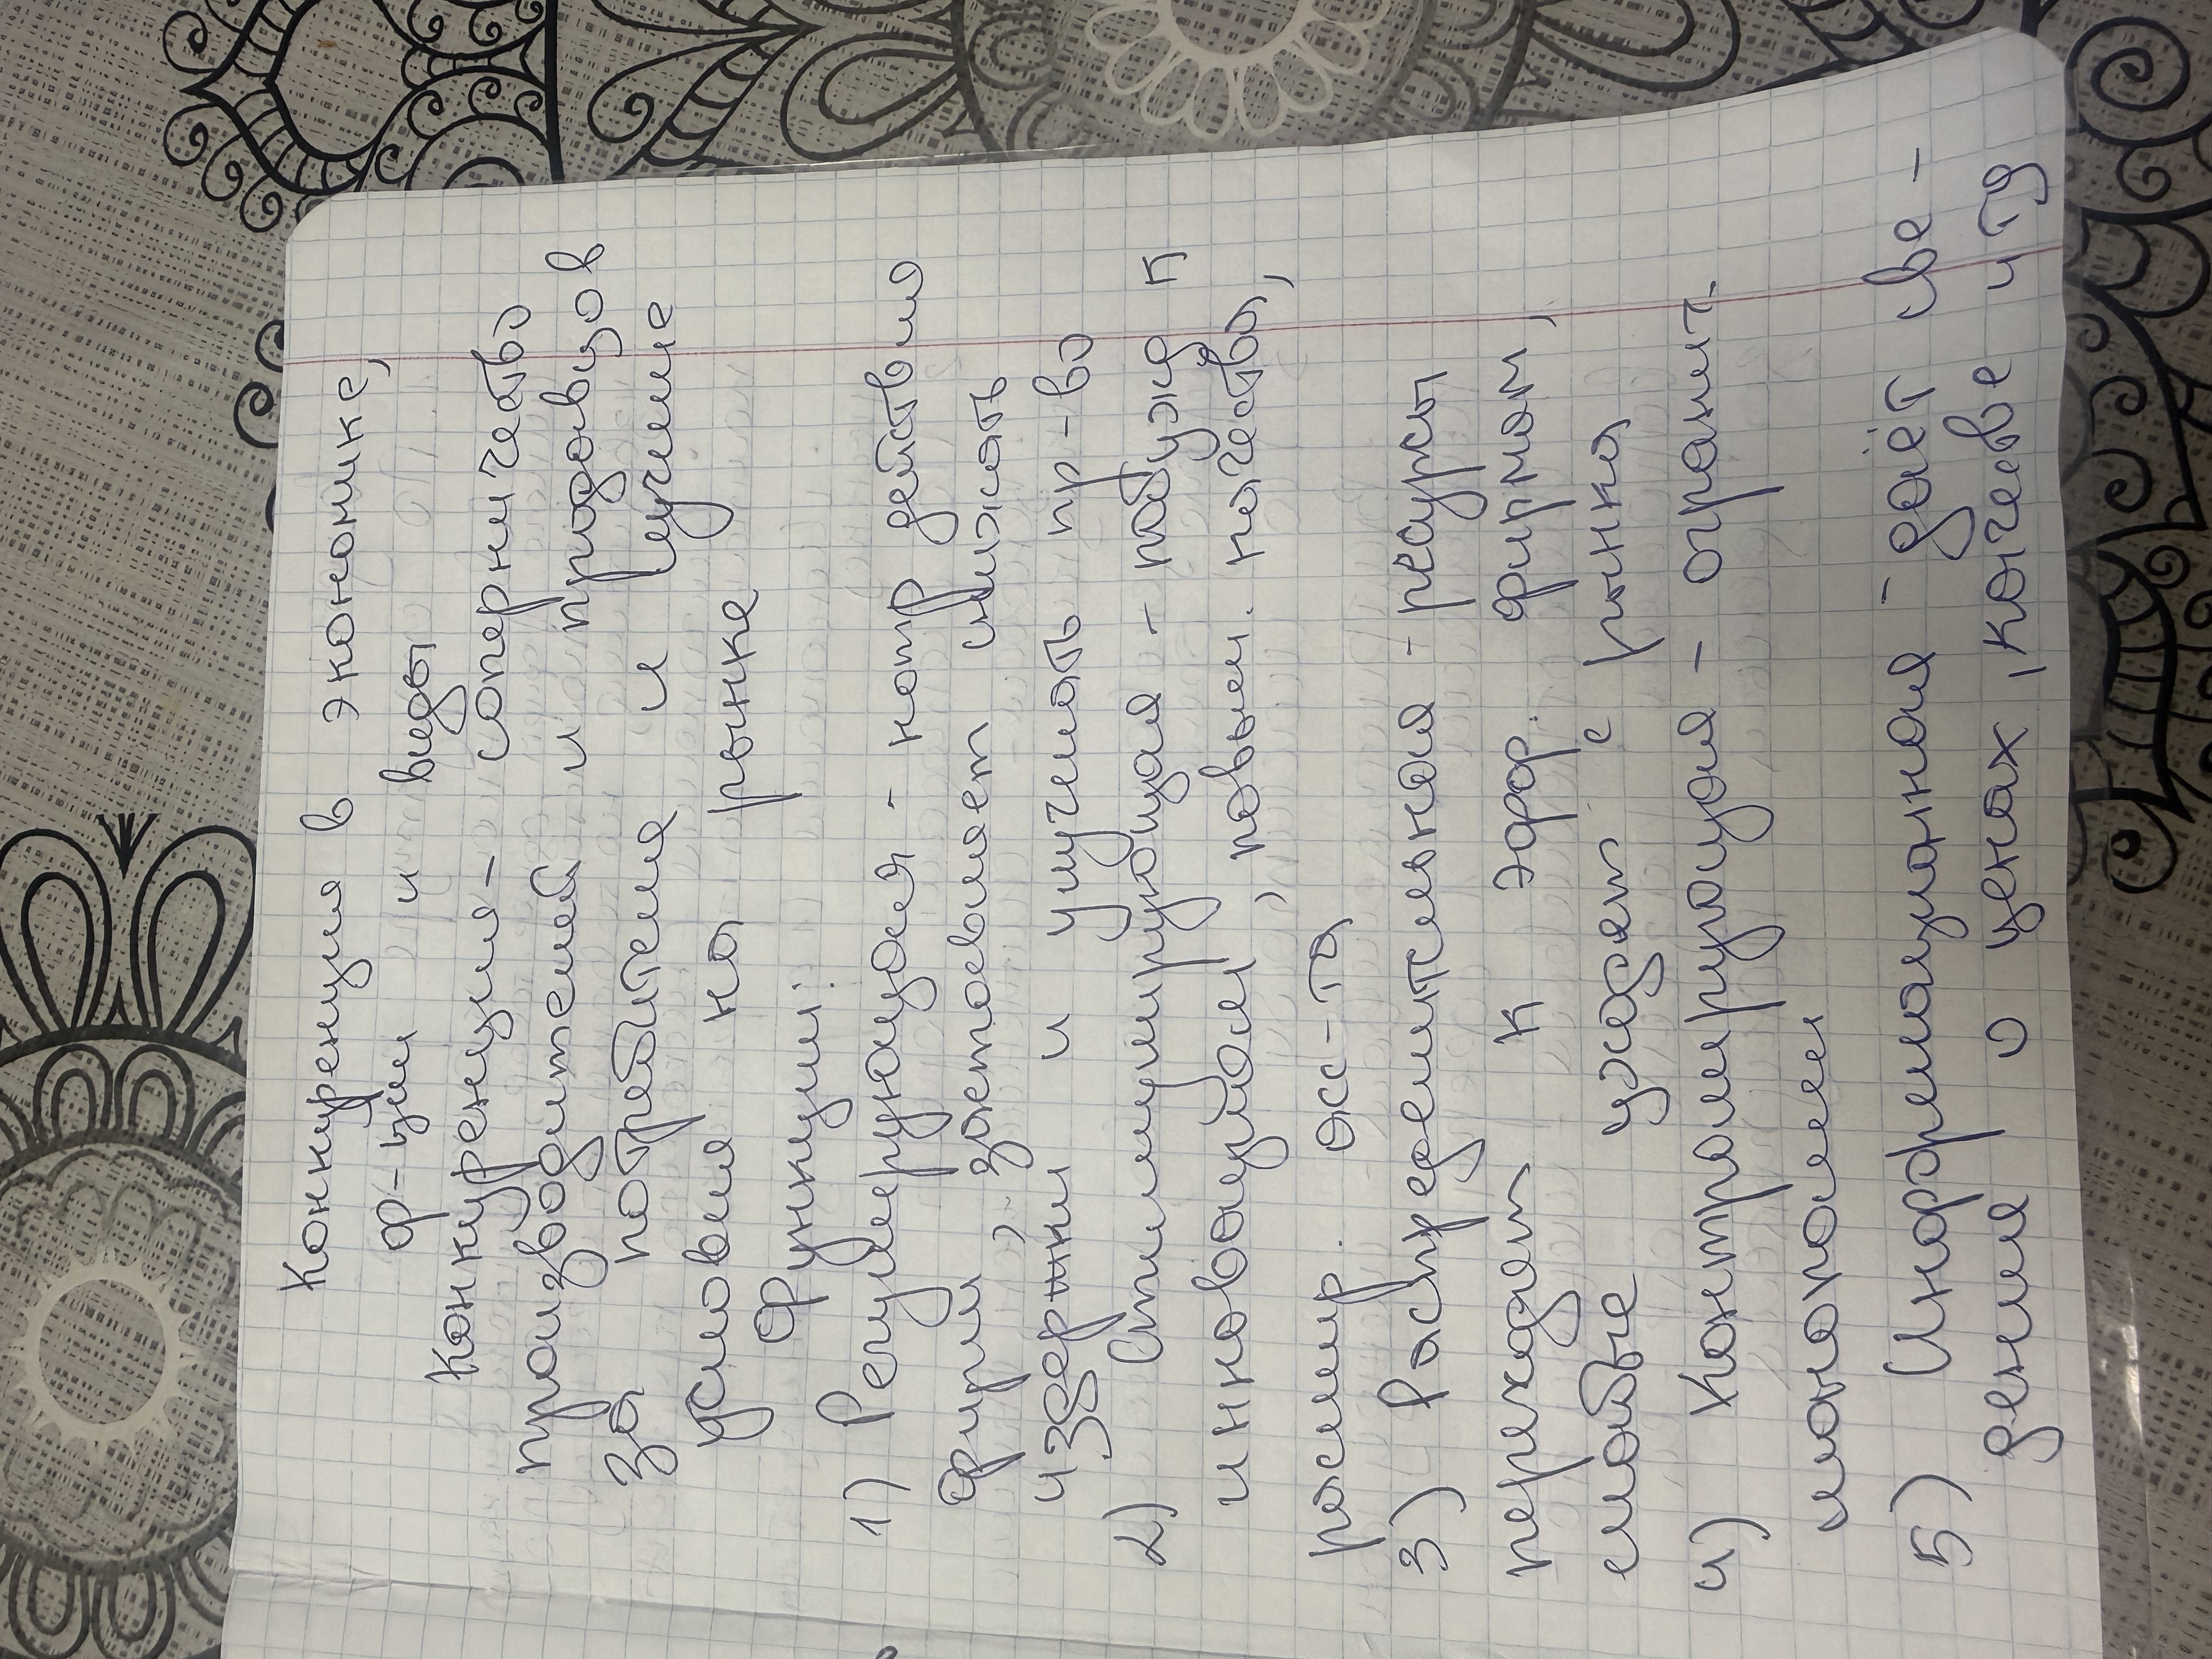 Конкуренция в экономике,
ф-ции и виды
Конкуренция - соперничество
производителей и продавцов
за потребителя и лучшие
условия на рынке
Функции:
1) Регулирующая - напр действия
фирм, заставляет снижать
издержки и улучшать пр-во
2) Стимулирующая - побужд к
инновациям, повыш. качества,
расшир. асс-та
3) Распределительная - ресурсы
переходят к эфф. фирмам,
слабые уходят с рынка
4) Контролирующая - огранич.
монополии
5) Информационная - даёт све-
дения о ценах, качестве и тд